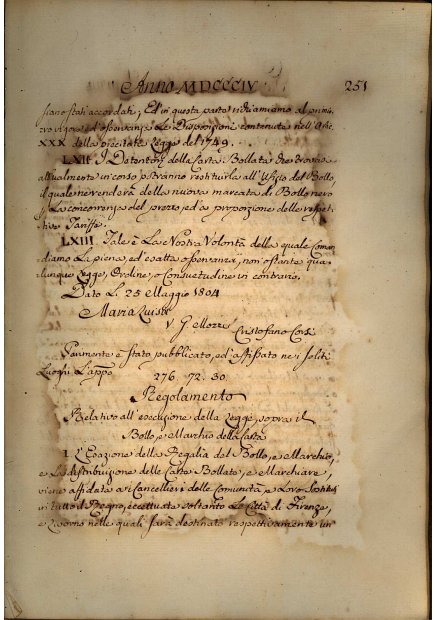 Anno MDCCCIV. 251
siano stati accordati; Ed in questa parte richiamiamo al primie,,
ro vigore ed osservanza le Disposizioni contenute nell'Artic.
XXX della precitata Legge del 1749.
LXII I Detentori della Carta Bollata che trovasi
attualmente in corso potranno restituirla all'Ufizio del Bollo
il quale ne renderà della nuova marcata di Bollo nero
p. La concorrenza del prezzo, ed a proporzione delle rispet,,
tive Tariffe.
LXIII Tale è La Nostra Volontà della quale Coman,,
diamo La piena, ed esatta osservanza, non ostante qua,,
lunque Legge, Ordine, o Consuetudine in contrario.
Dato Li 25 Maggio 1804
Maria Luisa
V. G. Mozzi
Cristofano Corsi
Parimente è stato pubblicato, ed affissato nei soliti
Luoghi L'appo
276. 72. 30.
Regolamento
Relativo all'esecuzione della Legge, sopra il
Bollo, e Marchio della Carta
I. L'Esazione della Regalia del Bollo, e Marchio,
e La distribuzione delle Carte Bollate, e Marchiate,
viene affidata ai Cancellieri delle Comunità, e Loro Sostituti
in tutto il Regno, eccettuate soltanto Le Città di Firenze,
e Livorno nelle quali sarà destinato respettivamente un